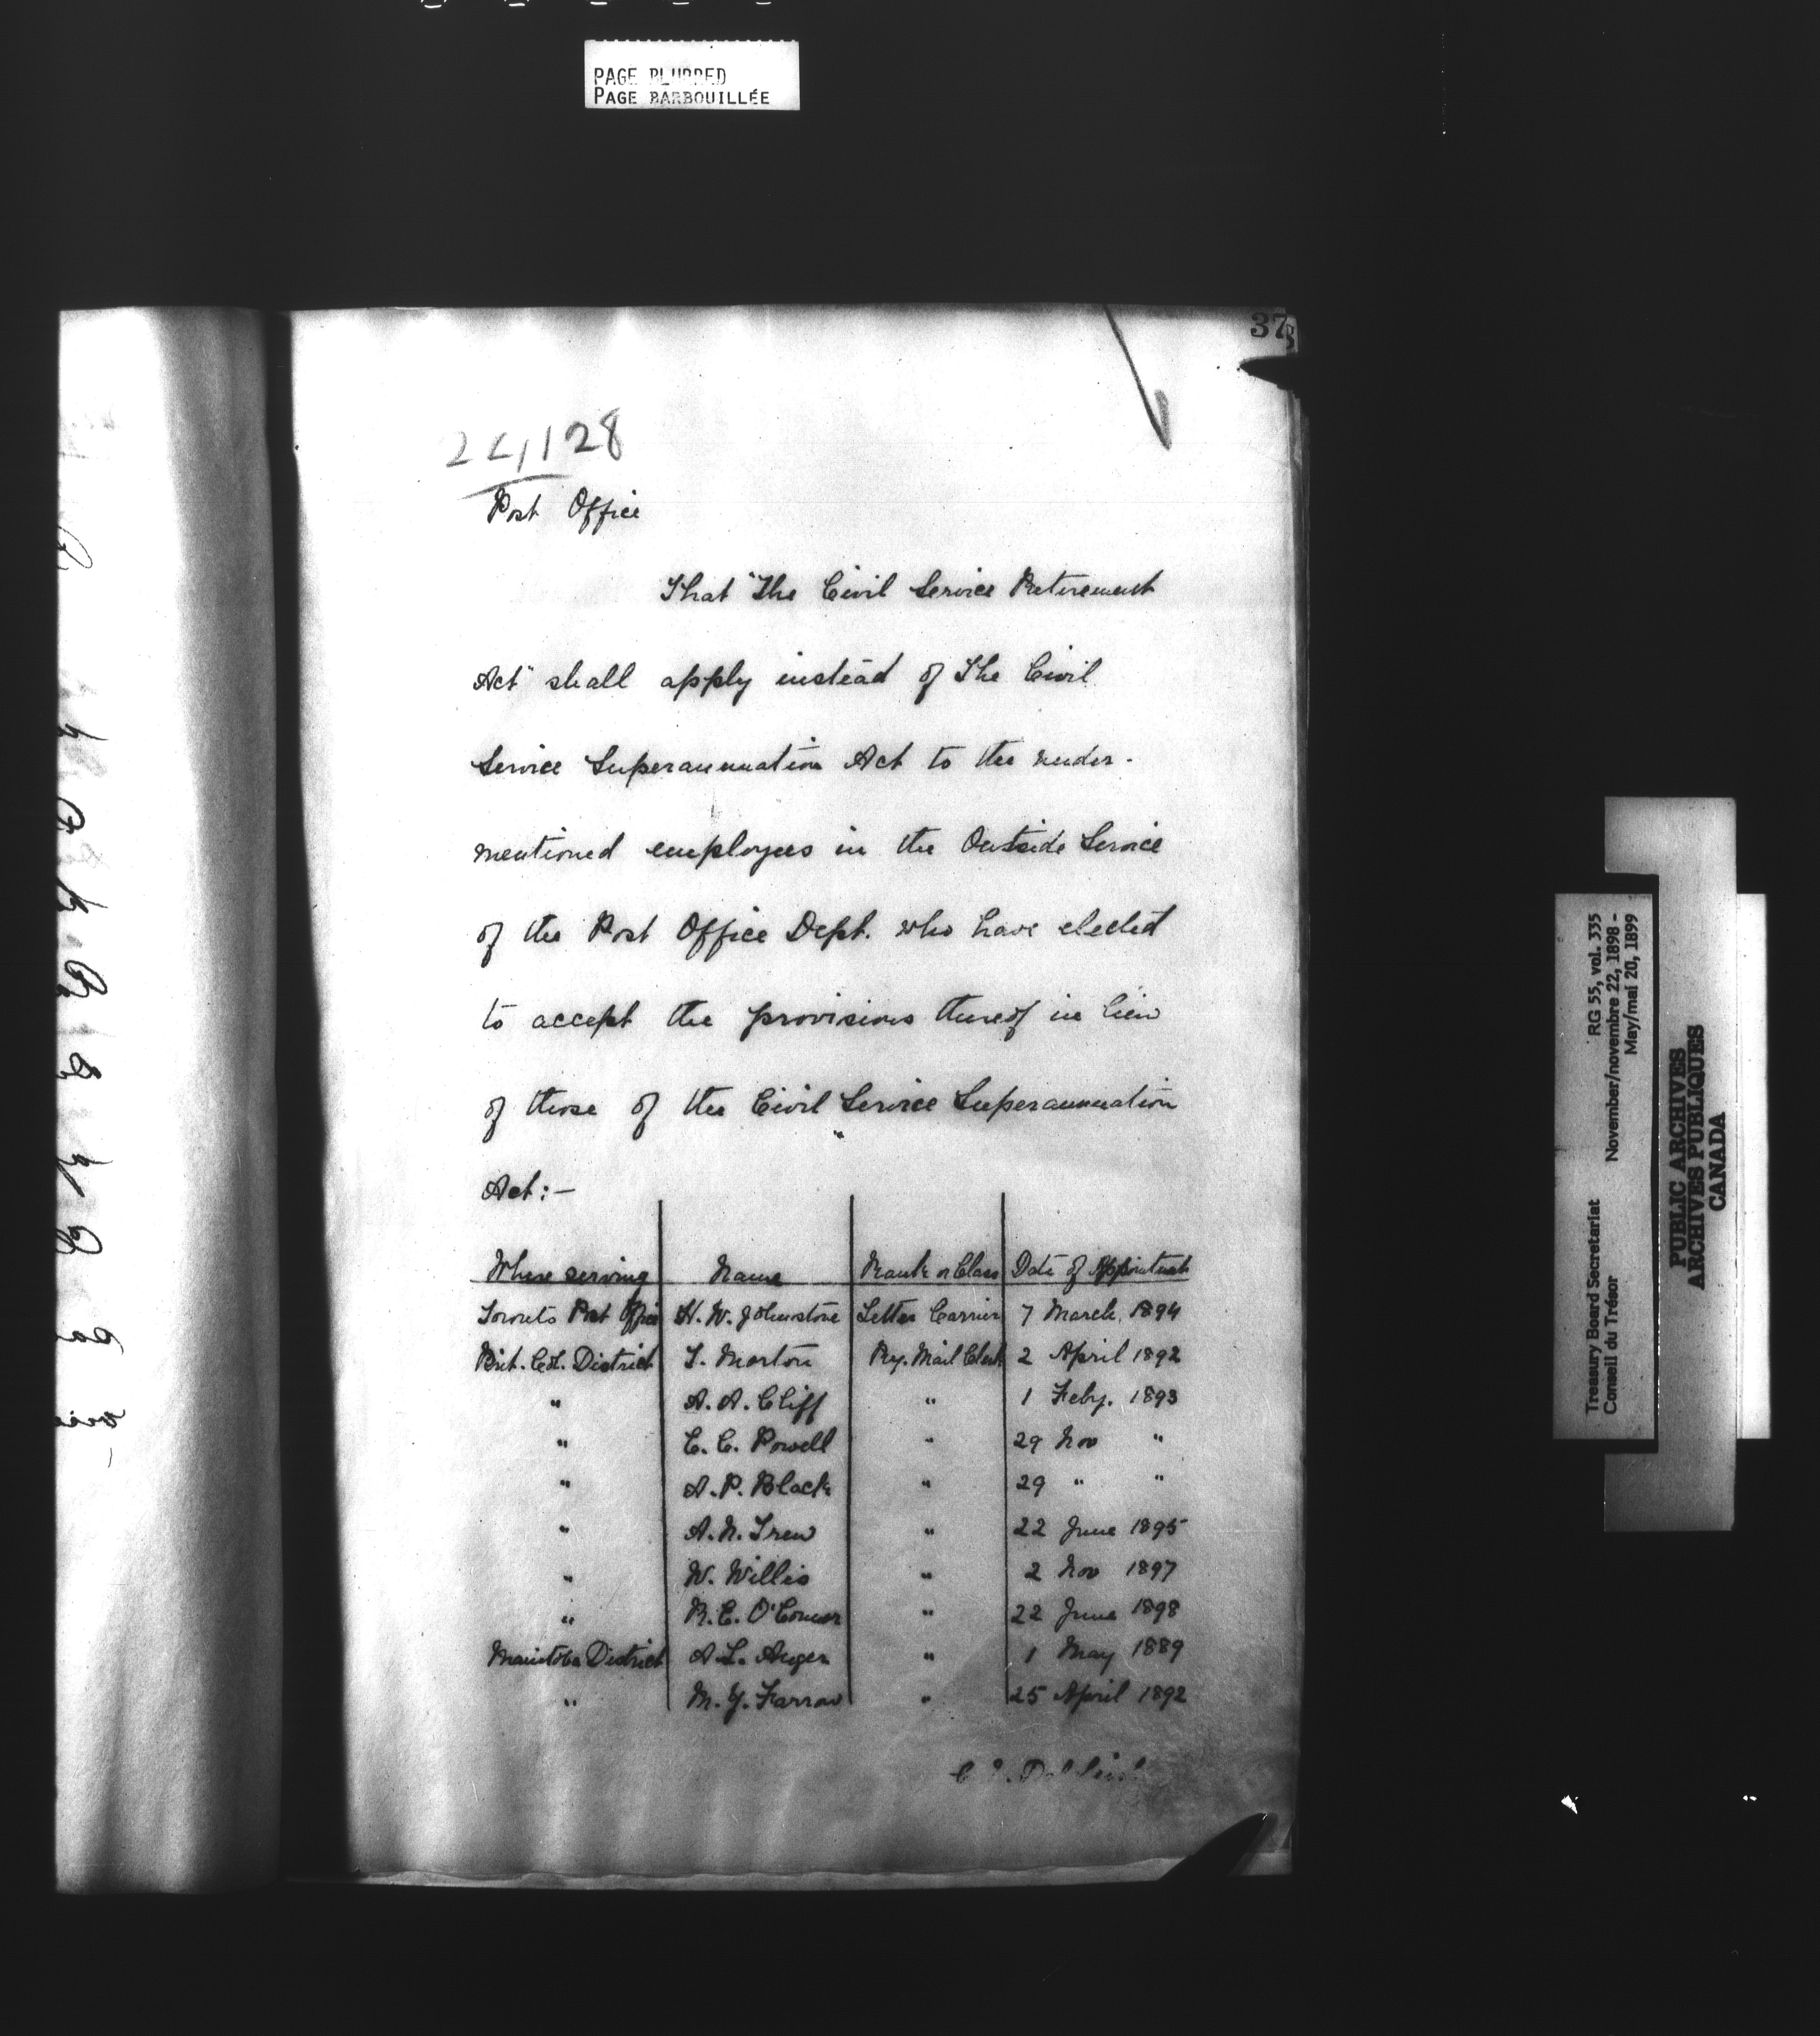 PAGE BLURRED
PAGE BARBOUILLÉE
37
128
Post Office
That "The Civil Service Retirement
Act" shall apply instead of The Civil
Service Superannuation Act to the under-
mentioned employees in the Outside Service
of the Post Office Dept. who have elected
to accept the provisions thereof in lieu
of those of the Civil Service Superannuation
Act:-
Where serving Name Rank or Class Date of Appointment
Toronto Post Office H. W. Johnstone Letter Carrier 7 March, 1894
Brit. Col. District T. Morton Ry. Mail Clerk 2 April 1892
" A. A. Cliff " 1 Feby. 1893
" C. C. Powell " 29 Nov "
" A. P. Black " 29 " "
" A. N. Trew " 22 June 1895
" W. Willis " 2 Nov 1897
" R. E. O'Connor " 22 June 1898
Manitoba District A. L. Auger " 1 May 1889
" M. Y. Farrow " 25 April 1892
Treasury Board Secretariat RG 55, vol. 335
Conseil du Trésor November/novembre 22, 1898 -
May/mai 20, 1899
PUBLIC ARCHIVES
ARCHIVES PUBLIQUES
CANADA